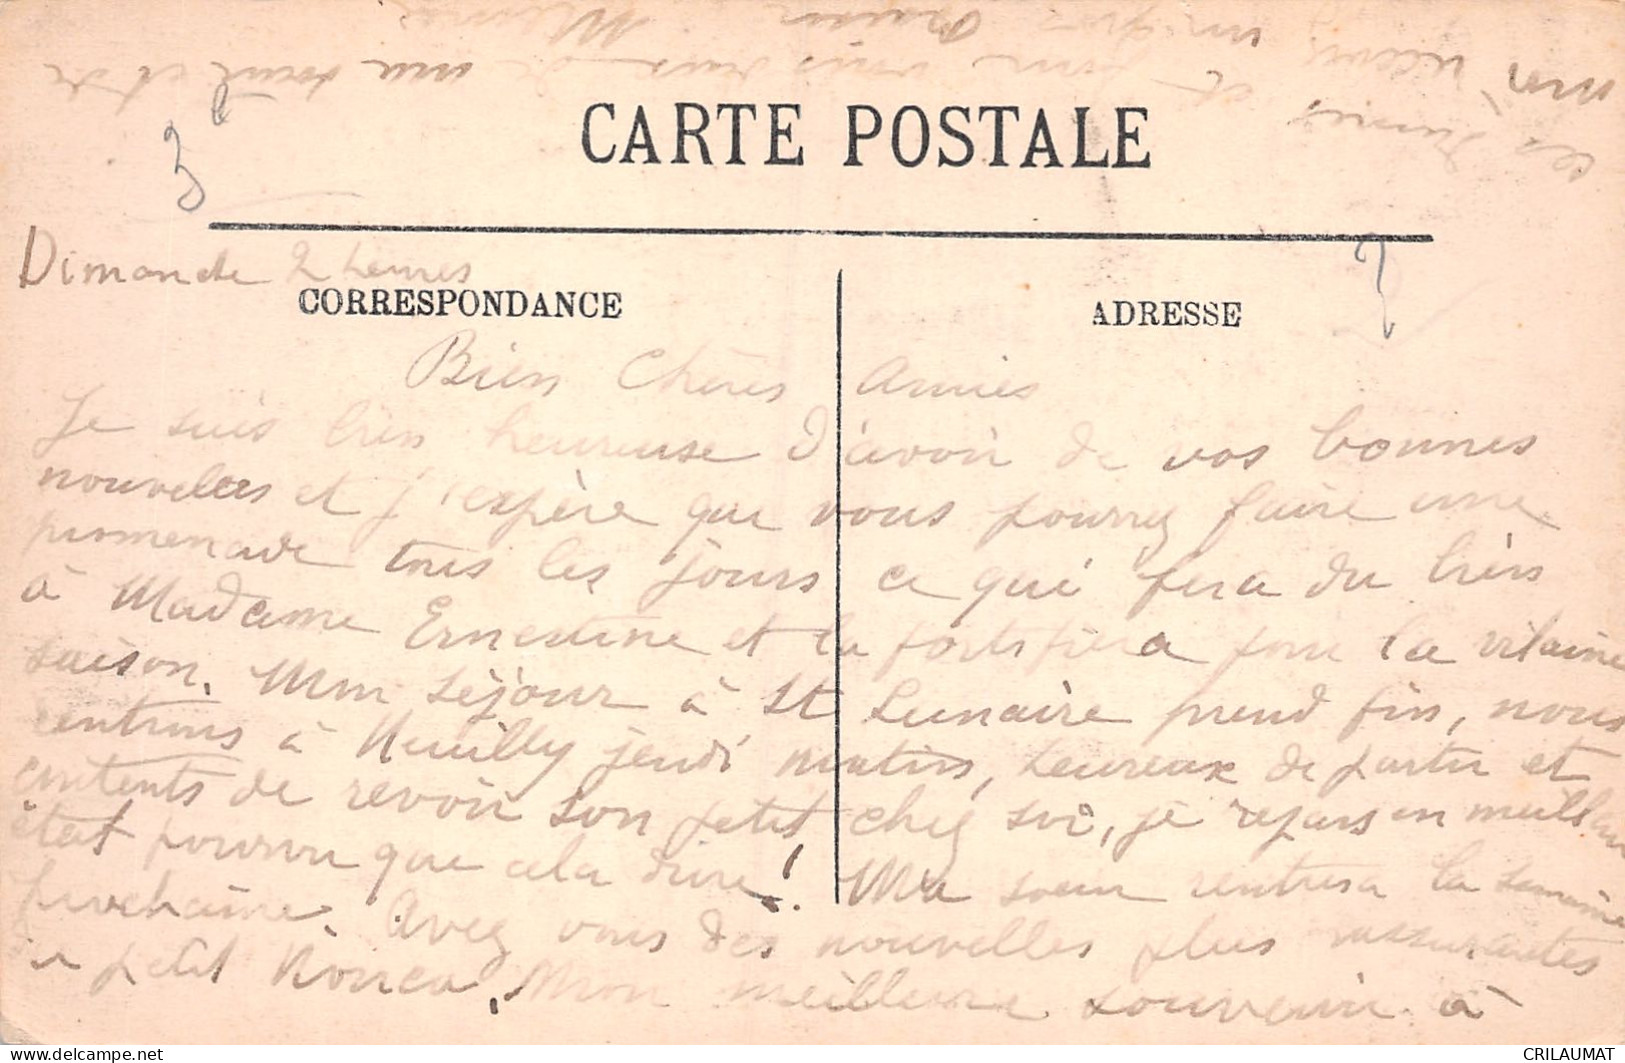 CARTE POSTALE
Dimanche 2 heures
CORRESPONDANCE
ADRESSE
Bien Chères Amies
Je suis très heureuse d'avoir de vos bonnes
nouvelles et j'espère que vous pourrez faire une
promenade tous les jours ce qui fera du bien
à Madame Ernestine et la fortifiera pour la vilaine
saison. Mon séjour à St Lunaire prend fin, nous
rentrons à Neuilly jeudi matin, heureux de partir et
contents de revoir son petit chez soi, je repars en meilleur
état pourvu que cela dure! Ma sœur rentrera la semaine
prochaine. Avez vous des nouvelles plus rassurantes
petit. Mon meilleure souvenir à
ces dames et pour vous deux de ma santé et de
mon un gros
CRILAUMAT